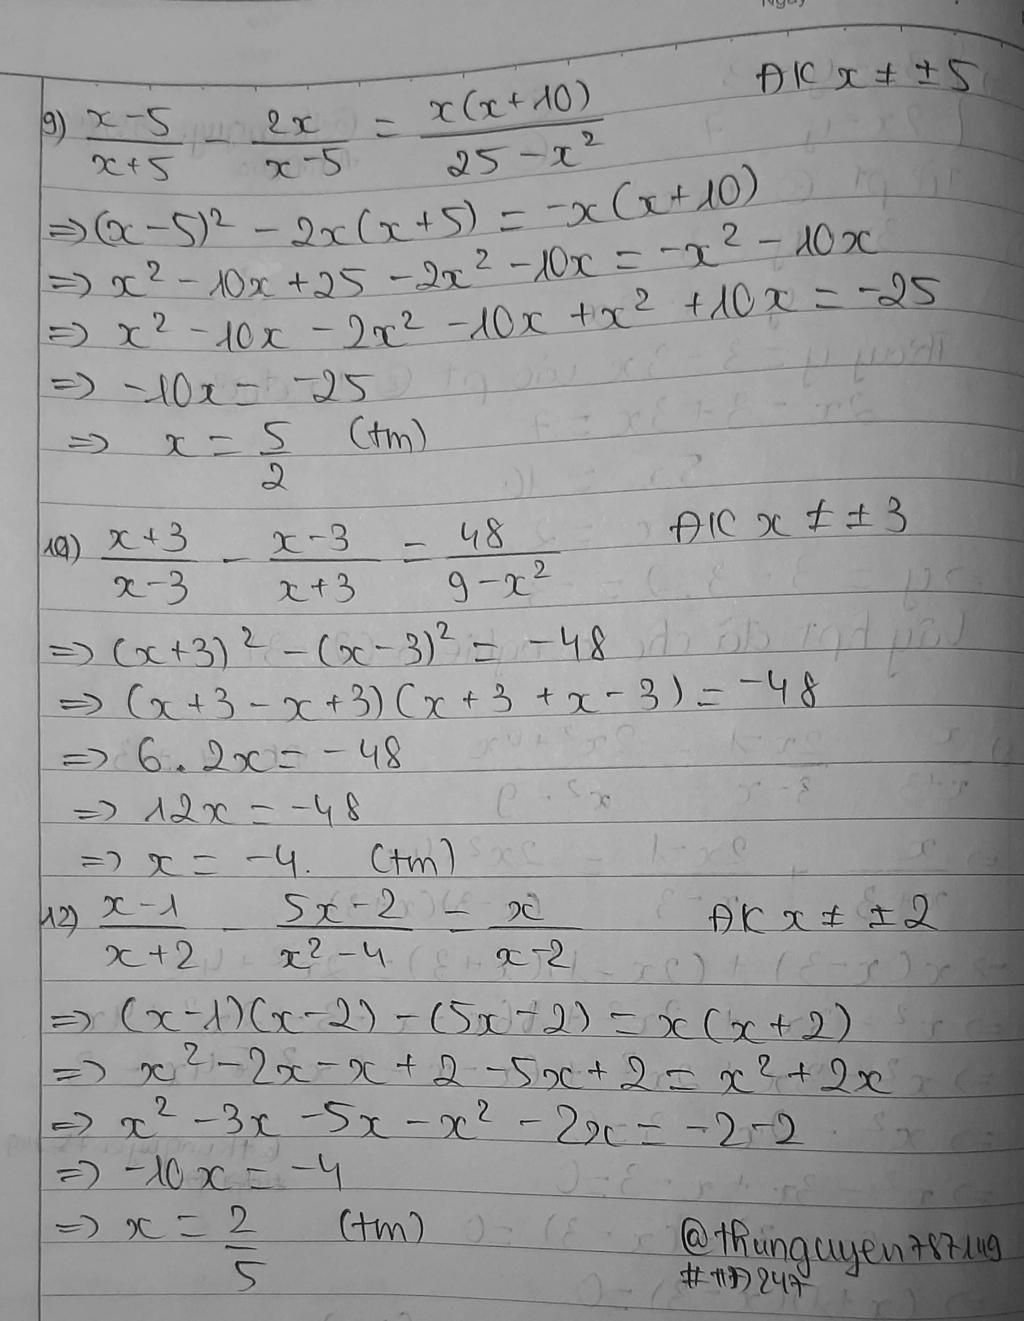 9) (x-5)/(x+5) - 2x/(x-5) = x(x+10)/(25-x²) ĐK x ≠ ±5
=> (x-5)² - 2x(x+5) = -x(x+10)
=> x² - 10x + 25 - 2x² - 10x = -x² - 10x
=> x² - 10x - 2x² - 10x + x² + 10x = -25
=> -10x = -25
=> x = 5/2 (tm)
10) (x+3)/(x-3) - (x-3)/(x+3) = 48/(9-x²) ĐK x ≠ ±3
=> (x+3)² - (x-3)² = -48
=> (x+3-x+3)(x+3+x-3) = -48
=> 6.2x = -48
=> 12x = -48
=> x = -4. (tm)
12) (x-1)/(x+2) - (5x-2)/(x²-4) = x/(x-2) ĐK x ≠ ±2
=> (x-1)(x-2) - (5x-2) = x(x+2)
=> x² - 2x - x + 2 - 5x + 2 = x² + 2x
=> x² - 3x - 5x - x² - 2x = -2-2
=> -10x = -4
=> x = 2/5 (tm)
@thunguyen787149